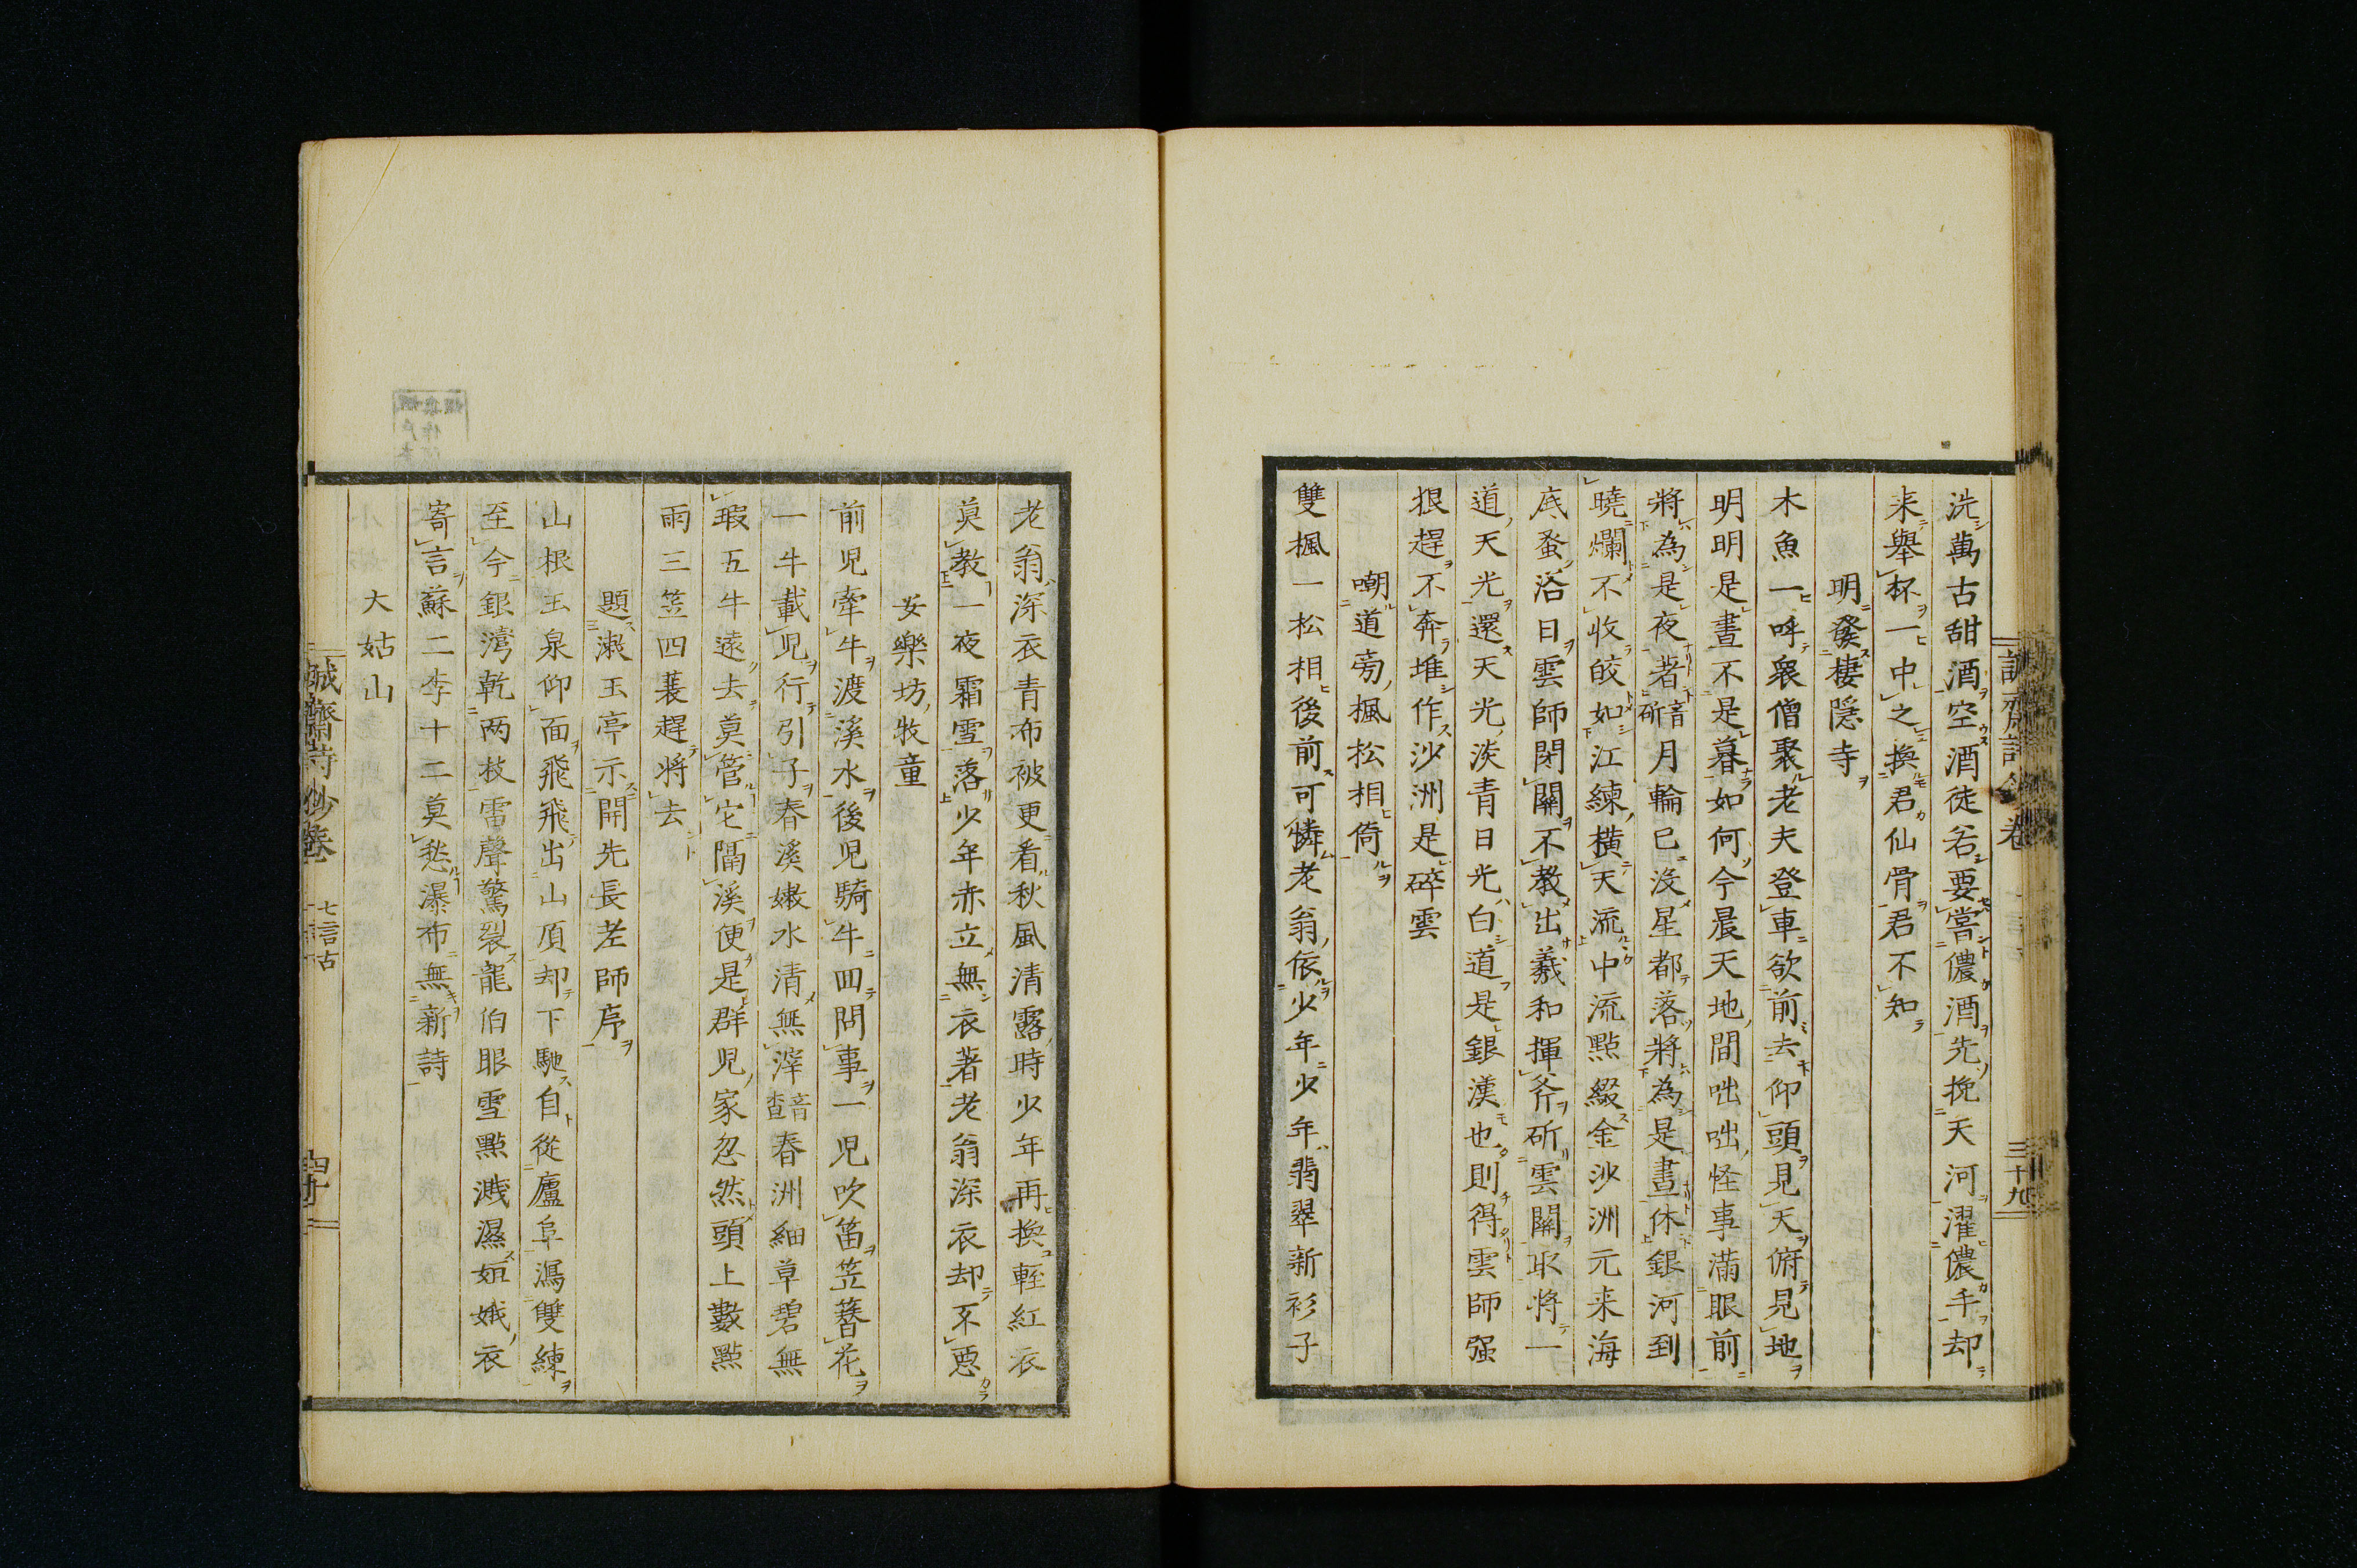 洗萬古甜酒空酒徒若要嘗儂酒先挽天河濯儂手却
来舉杯一中之換君仙骨君不知
明發棲隱寺
木魚一呼衆僧聚老夫登車欲前去仰頭見天俯見地
明明是晝不是暮如何今晨天地間咄咄怪事滿眼前
將為是夜著音斫月輪已沒星都落將為是晝休銀河到
曉爛不收皎如江練橫天流中流點綴金沙洲元来海
底蚤浴日雲師閉關不教出羲和揮斧斫雲關取將一
道天光還天光淡青日光白道是銀漢也則得雲師强
狠趕不奔堆作沙洲是碎雲
嘲道旁楓松相倚
雙楓一松相後前可憐老翁依少年少年翡翠新衫子
老翁深衣青布被更看秋風清露時少年再換輊紅衣
莫教一夜霜雪落少年赤立無衣著老翁深衣却不惡
安樂坊牧童
前児牽牛渡溪水後児騎牛囬問事一児吹笛笠簪花
一牛載児行引子春溪嫩水清無滓音查春洲細草碧無
瑕五牛遠去莫管它隔溪便是群児家忽然頭上數點
雨三笠四蓑趕將去
題漱玉亭示開先長老師序
山根玉泉仰面飛飛出山頂却下馳自從廬阜瀉雙練
至今銀灣乾两枝雷聲驚裂龍伯眼雪點濺濕姮娥衣
寄言蘇二李十二莫愁瀑布無新詩
大姑山
誠齋詩鈔 卷 三十九
誠齋詩鈔卷 七言古 四十